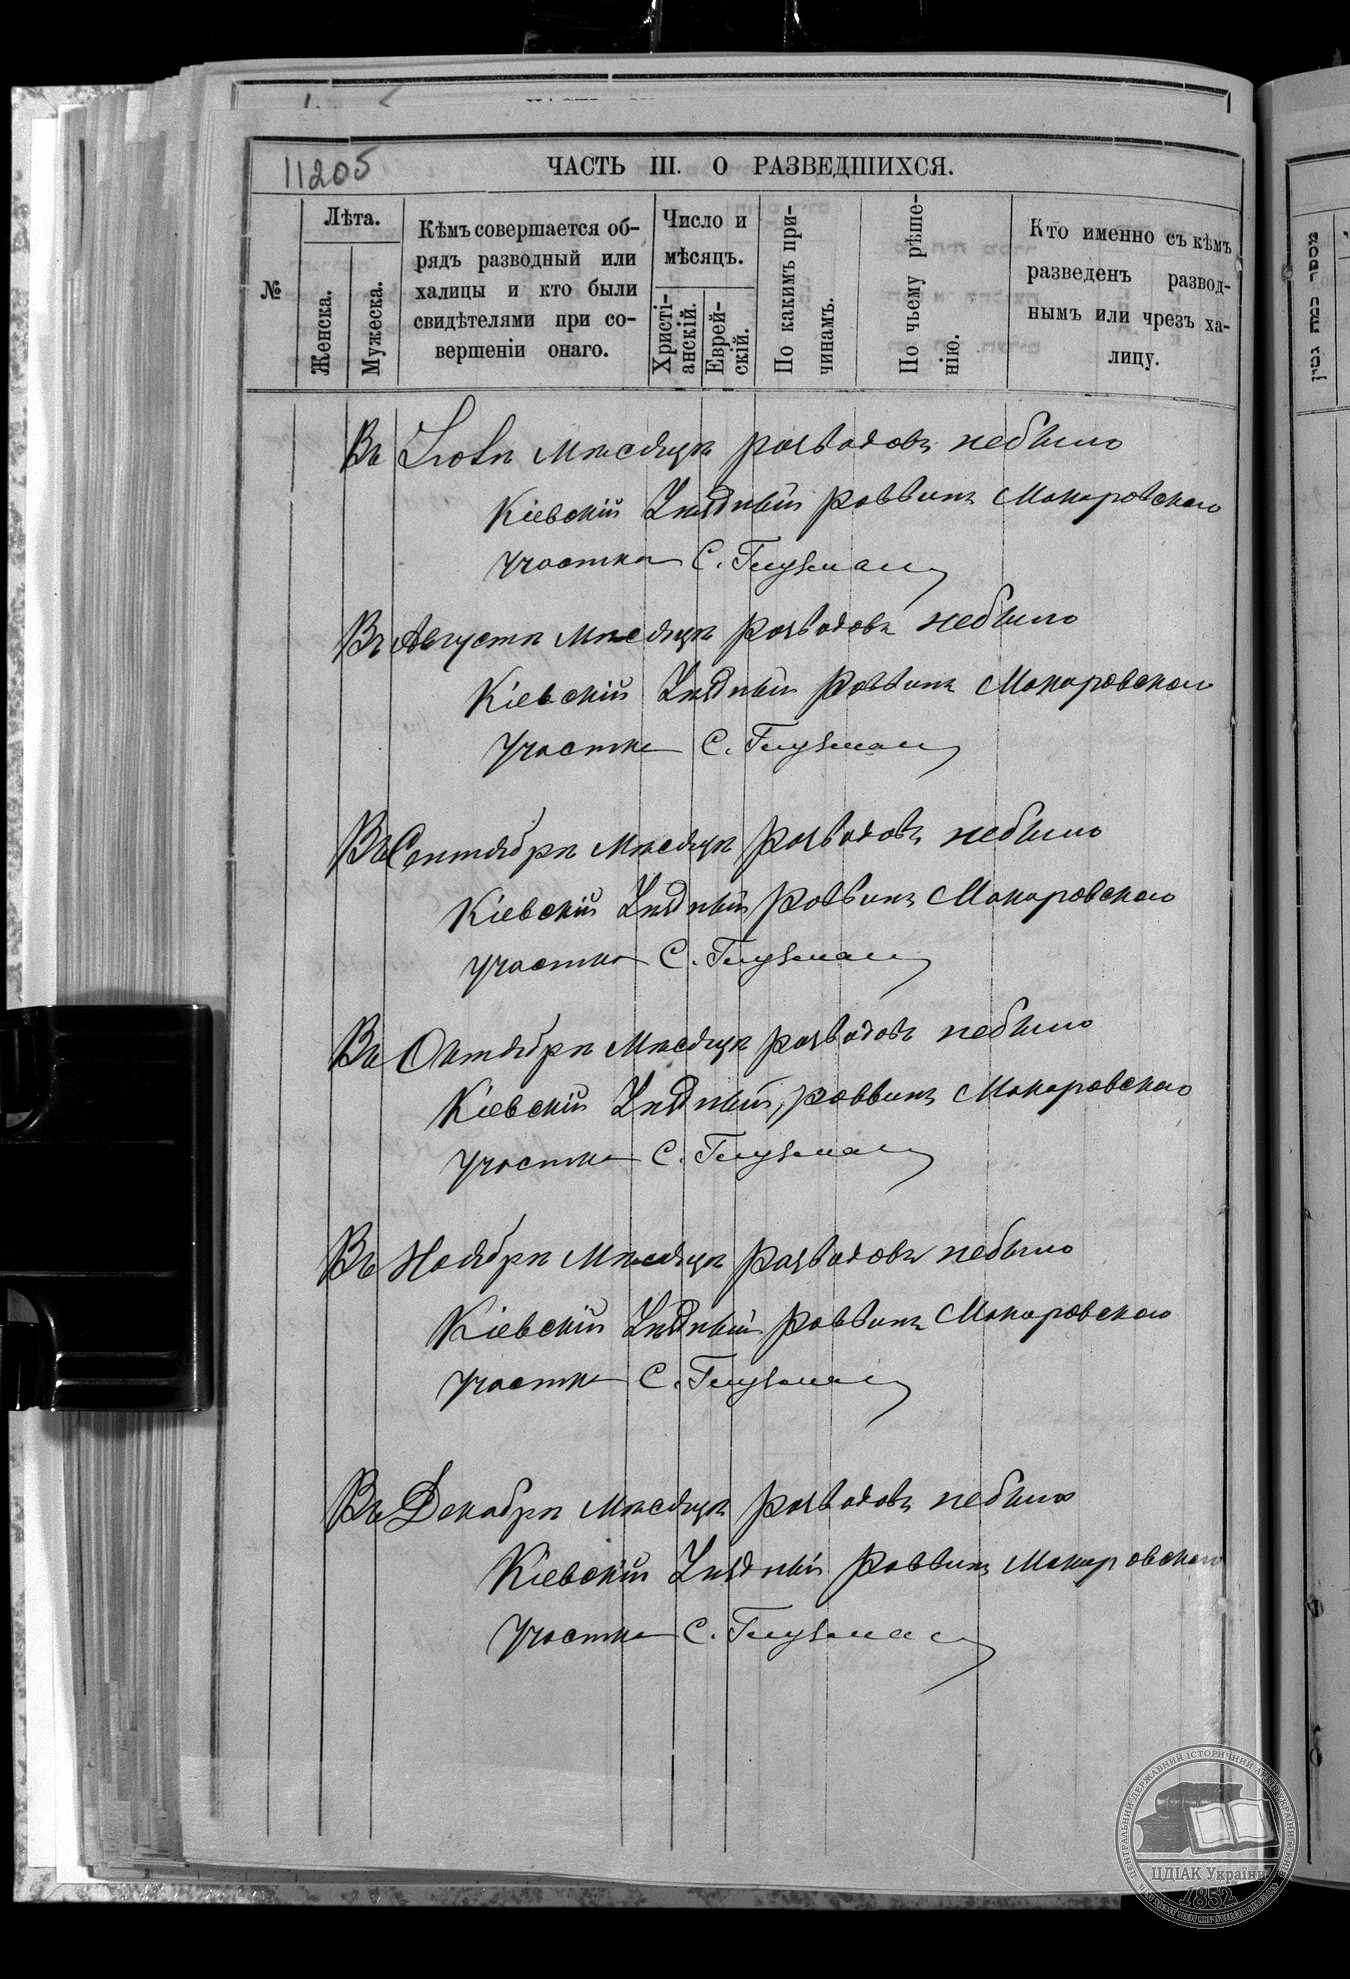 11205
ЧАСТЬ III. О РАЗВЕДШИХСЯ.
№
Лѣта.
Женска.
Мужеска.
Кѣмъ совершается об-
рядъ разводный или
халицы и кто были
свидѣтелями при со-
вершеніи онаго.
Число и
мѣсяцъ.
Христі-
анскій.
Еврей-
скій.
По какимъ при-
чинамъ.
По чьему рѣше-
нію.
Кто именно съ кѣмъ
разведенъ развод-
нымъ или чрезъ ха-
лицу.
Въ Іюлѣ мѣсяцѣ разводовъ небыло
Кіевскій Уѣздный раввинъ Макаровскаго
участка С. Глузман
Въ Августѣ мѣсяцѣ разводовъ небыло
Кіевскій Уѣздный раввинъ Макаровскаго
участка С. Глузман
Въ Сентябрѣ мѣсяцѣ разводовъ небыло
Кіевскій Уѣздный раввинъ Макаровскаго
участка С. Глузман
Въ Октябрѣ мѣсяцѣ разводовъ небыло
Кіевскій Уѣздный раввинъ Макаровскаго
участка С. Глузман
Въ Ноябрѣ мѣсяцѣ разводовъ небыло
Кіевскій Уѣздный раввинъ Макаровскаго
участка С. Глузман
Въ Декабрѣ мѣсяцѣ разводовъ небыло
Кіевскій Уѣздный раввинъ Макаровскаго
участка С. Глузман
מספר כמה גטין
ЦЕНТРАЛЬНИЙ ДЕРЖАВНИЙ ІСТОРИЧНИЙ АРХІВ УКРАЇНИ
ЦДІАК України
1852